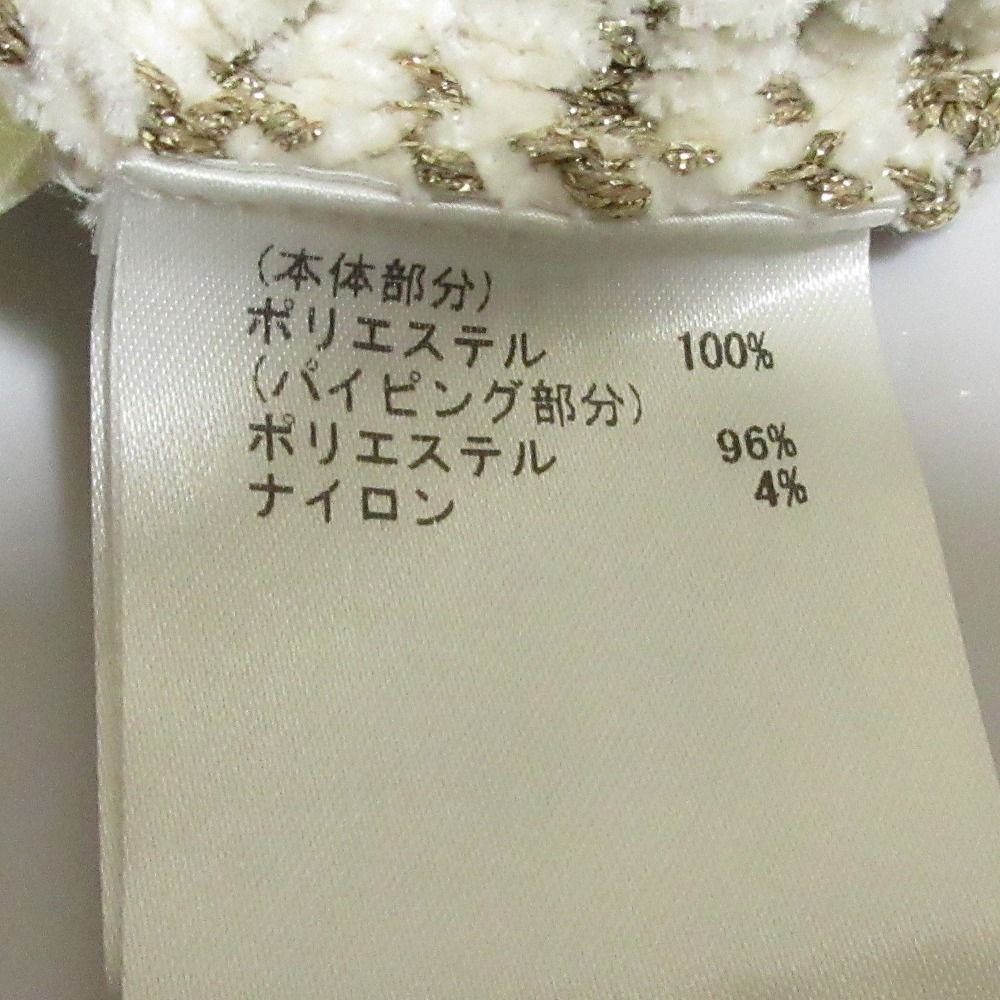 (本体部分)
ポリエステル 100%
(パイピング部分)
ポリエステル 96%
ナイロン 4%